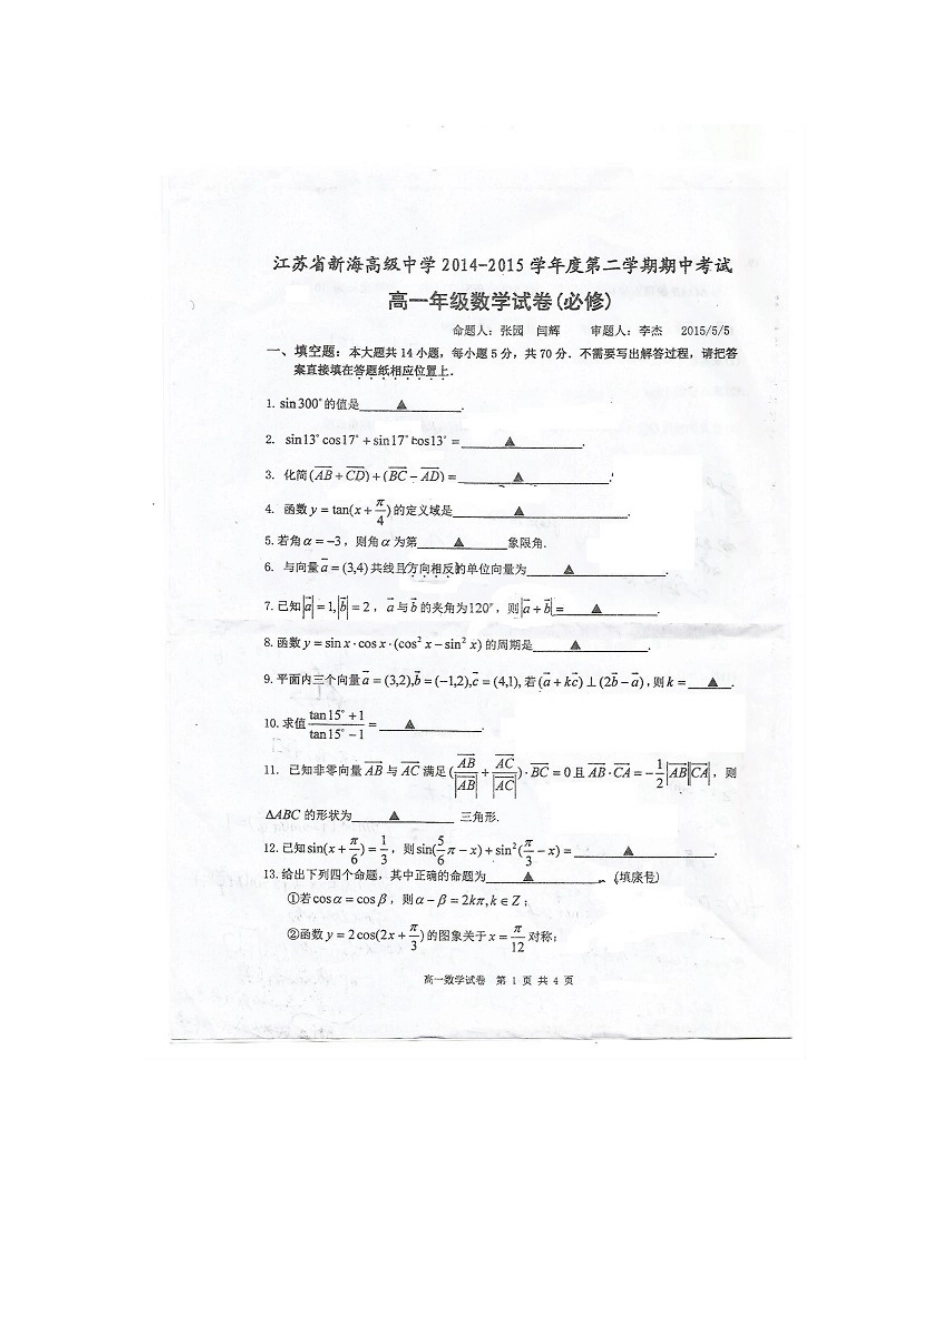 江苏省新海高级中学 2014-2015 学年度第二学期期中考试
高一年级数学试卷(必修)
命题人：张园 闫辉 审题人：李杰 2015/5/5
一、填空题：本大题共 14 小题，每小题 5 分，共 70 分．不需要写出解答过程，请把答
案直接填在答题纸相应位置上．
1. sin300°的值是____▲____.
2. sin13°cos17°+sin17°cos13°=____▲____.
3. 化简(\overline{AB}+\overline{CD})+(\overline{BC}-\overline{AD})=____▲____.
4. 函数 y=tan(x+\frac{π}{4})的定义域是____▲____.
5. 若角α=-3，则角α为第____▲____象限角.
6. 与向量\vec{a}=(3,4)共线且方向相反的单位向量为____▲____.
7. 已知|\vec{a}|=1,|\vec{b}|=2，\vec{a}与\vec{b}的夹角为120°，则|\vec{a}+\vec{b}|=____▲____.
8. 函数 y=sin x·cos x·(cos² x-sin² x)的周期是____▲____.
9. 平面内三个向量\vec{a}=(3,2),\vec{b}=(-1,2),\vec{c}=(4,1),若(\vec{a}+k\vec{c})⊥(2\vec{b}-\vec{a}),则k=__▲__.
10. 求值\frac{tan15°+1}{tan15°-1}=____▲____.
11. 已知非零向量\overline{AB}与\overline{AC}满足(\frac{\overline{AB}}{|\overline{AB}|}+\frac{\overline{AC}}{|\overline{AC}|})·\overline{BC}=0且\overline{AB}·\overline{CA}=-\frac{1}{2}|\overline{AB}||\overline{CA}|，则
ΔABC 的形状为____▲____三角形.
12. 已知sin(x+\frac{π}{6})=\frac{1}{3}，则sin(\frac{5}{6}π-x)+sin²(\frac{π}{3}-x)=____▲____.
13. 给出下列四个命题，其中正确的命题为____▲____.(填序号)
①若cosα=cosβ，则α-β=2kπ,k∈Z；
②函数 y=2cos(2x+\frac{π}{3})的图象关于x=\frac{π}{12}对称；
高一数学试卷 第 1 页 共 4 页